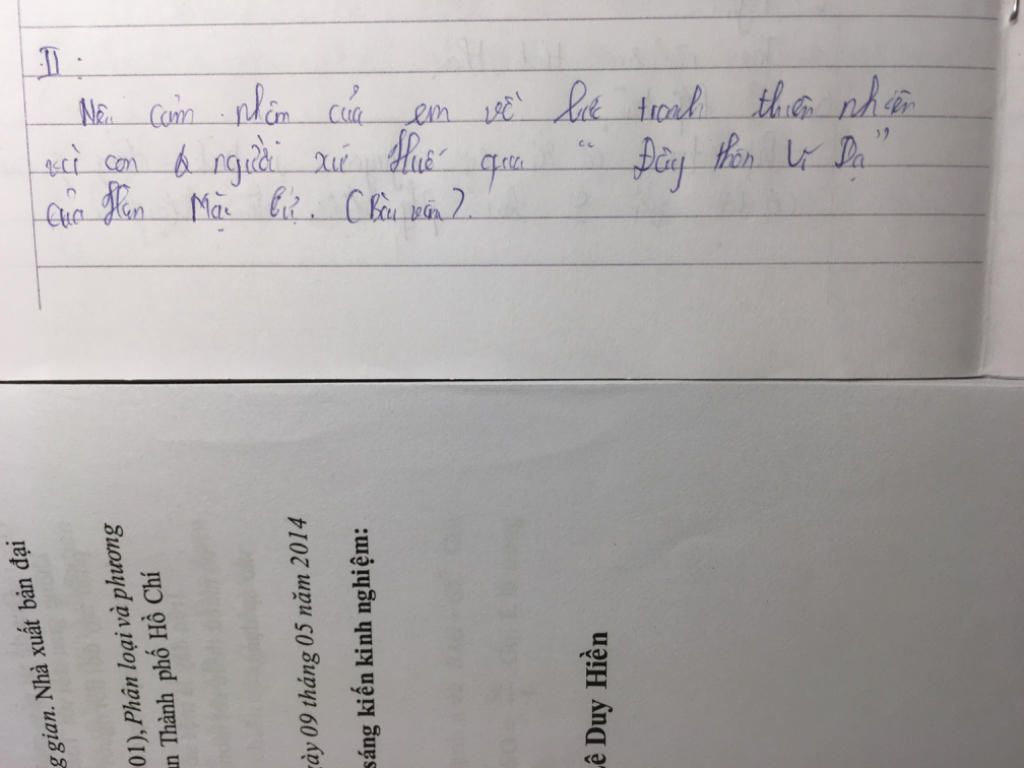 II :
Nêu cảm nhận của em về bức tranh thiên nhiên
và con người xứ Huế qua “Đây thôn Vĩ Dạ”
của Hàn Mặc Tử. (Bài văn).
g gian. Nhà xuất bản đại
01), Phân loại và phương
n Thành phố Hồ Chí
gày 09 tháng 05 năm 2014
sáng kiến kinh nghiệm:
ê Duy Hiền